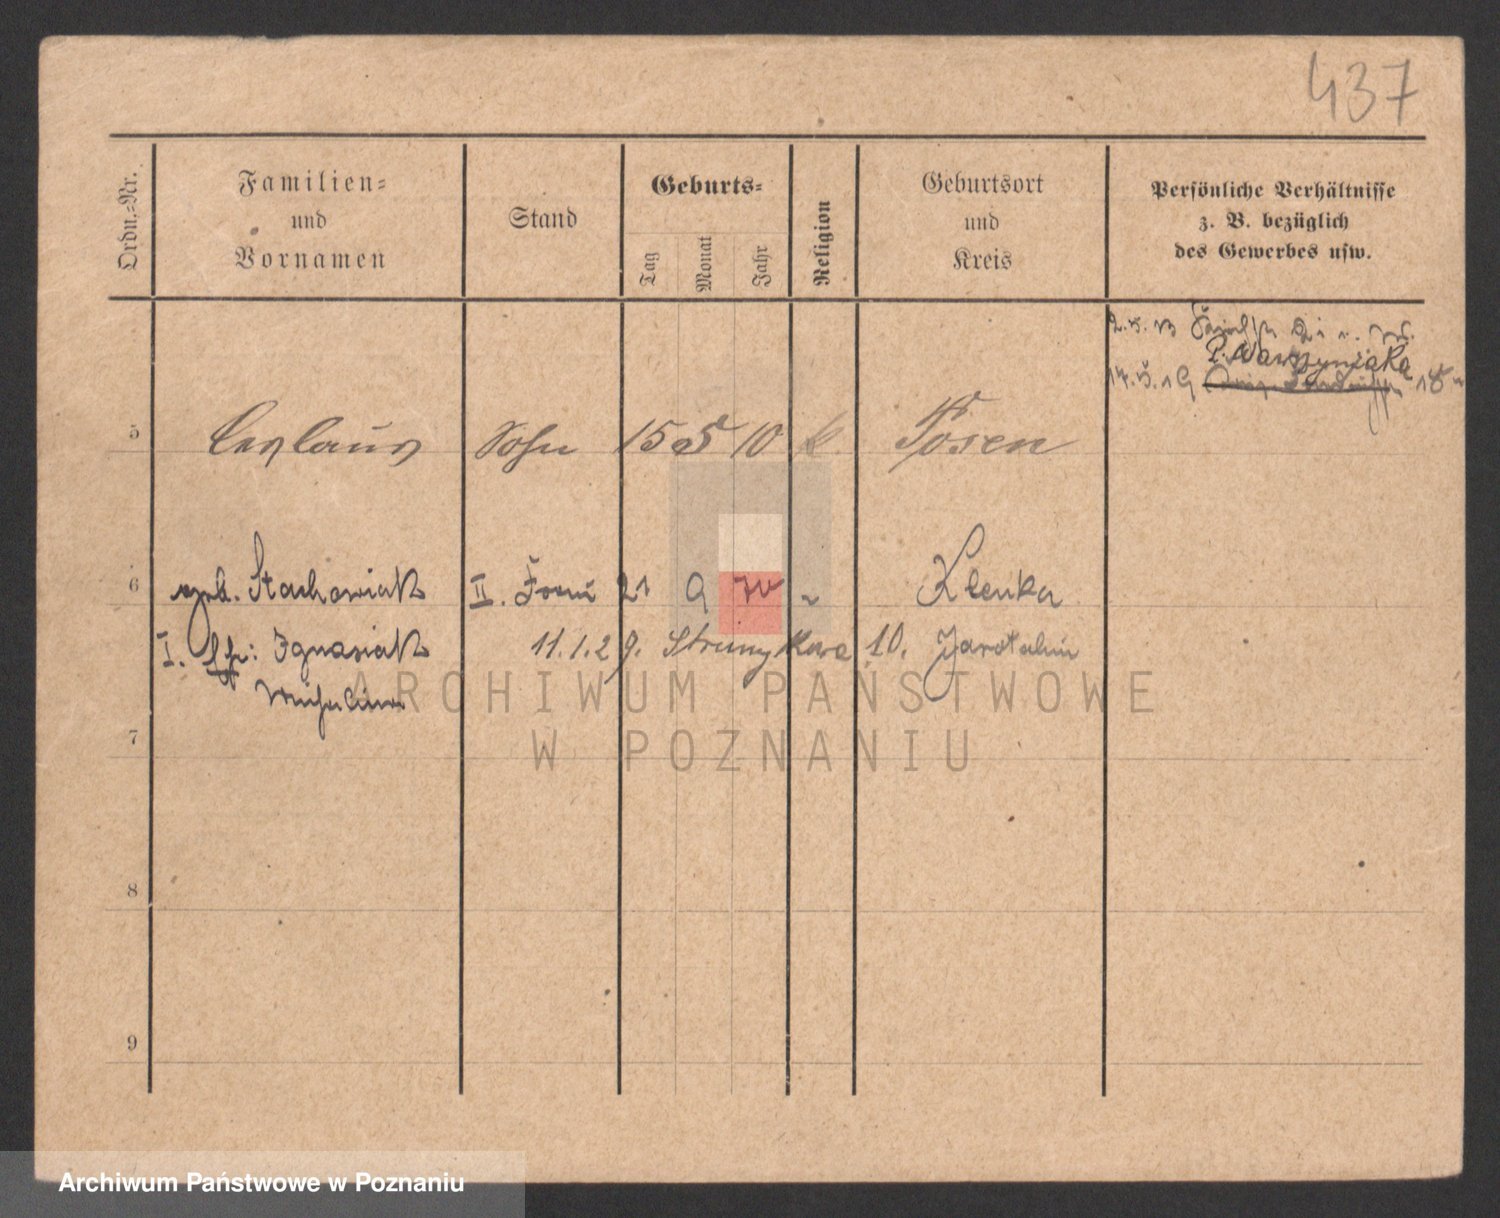 437
Ordn.-Nr.
Familien-
und
Vornamen
Stand
Geburts-
Tag
Monat
Jahr
Religion
Geburtsort
und
Kreis
Persönliche Verhältnisse
z. B. bezüglich
des Gewerbes usw.
2.5.13
P. Wawrzyniaka
17.5.19 18
5 Ceslaus Sohn 15 5 10 k. Posen
6 geb. Stachowiak II. Frau 21 9 Klenka
I. Ignasiak 11.1.29. 10. Jarotschin
7
8
9
ARCHIWUM PAŃSTWOWE
W POZNANIU
Archiwum Państwowe w Poznaniu